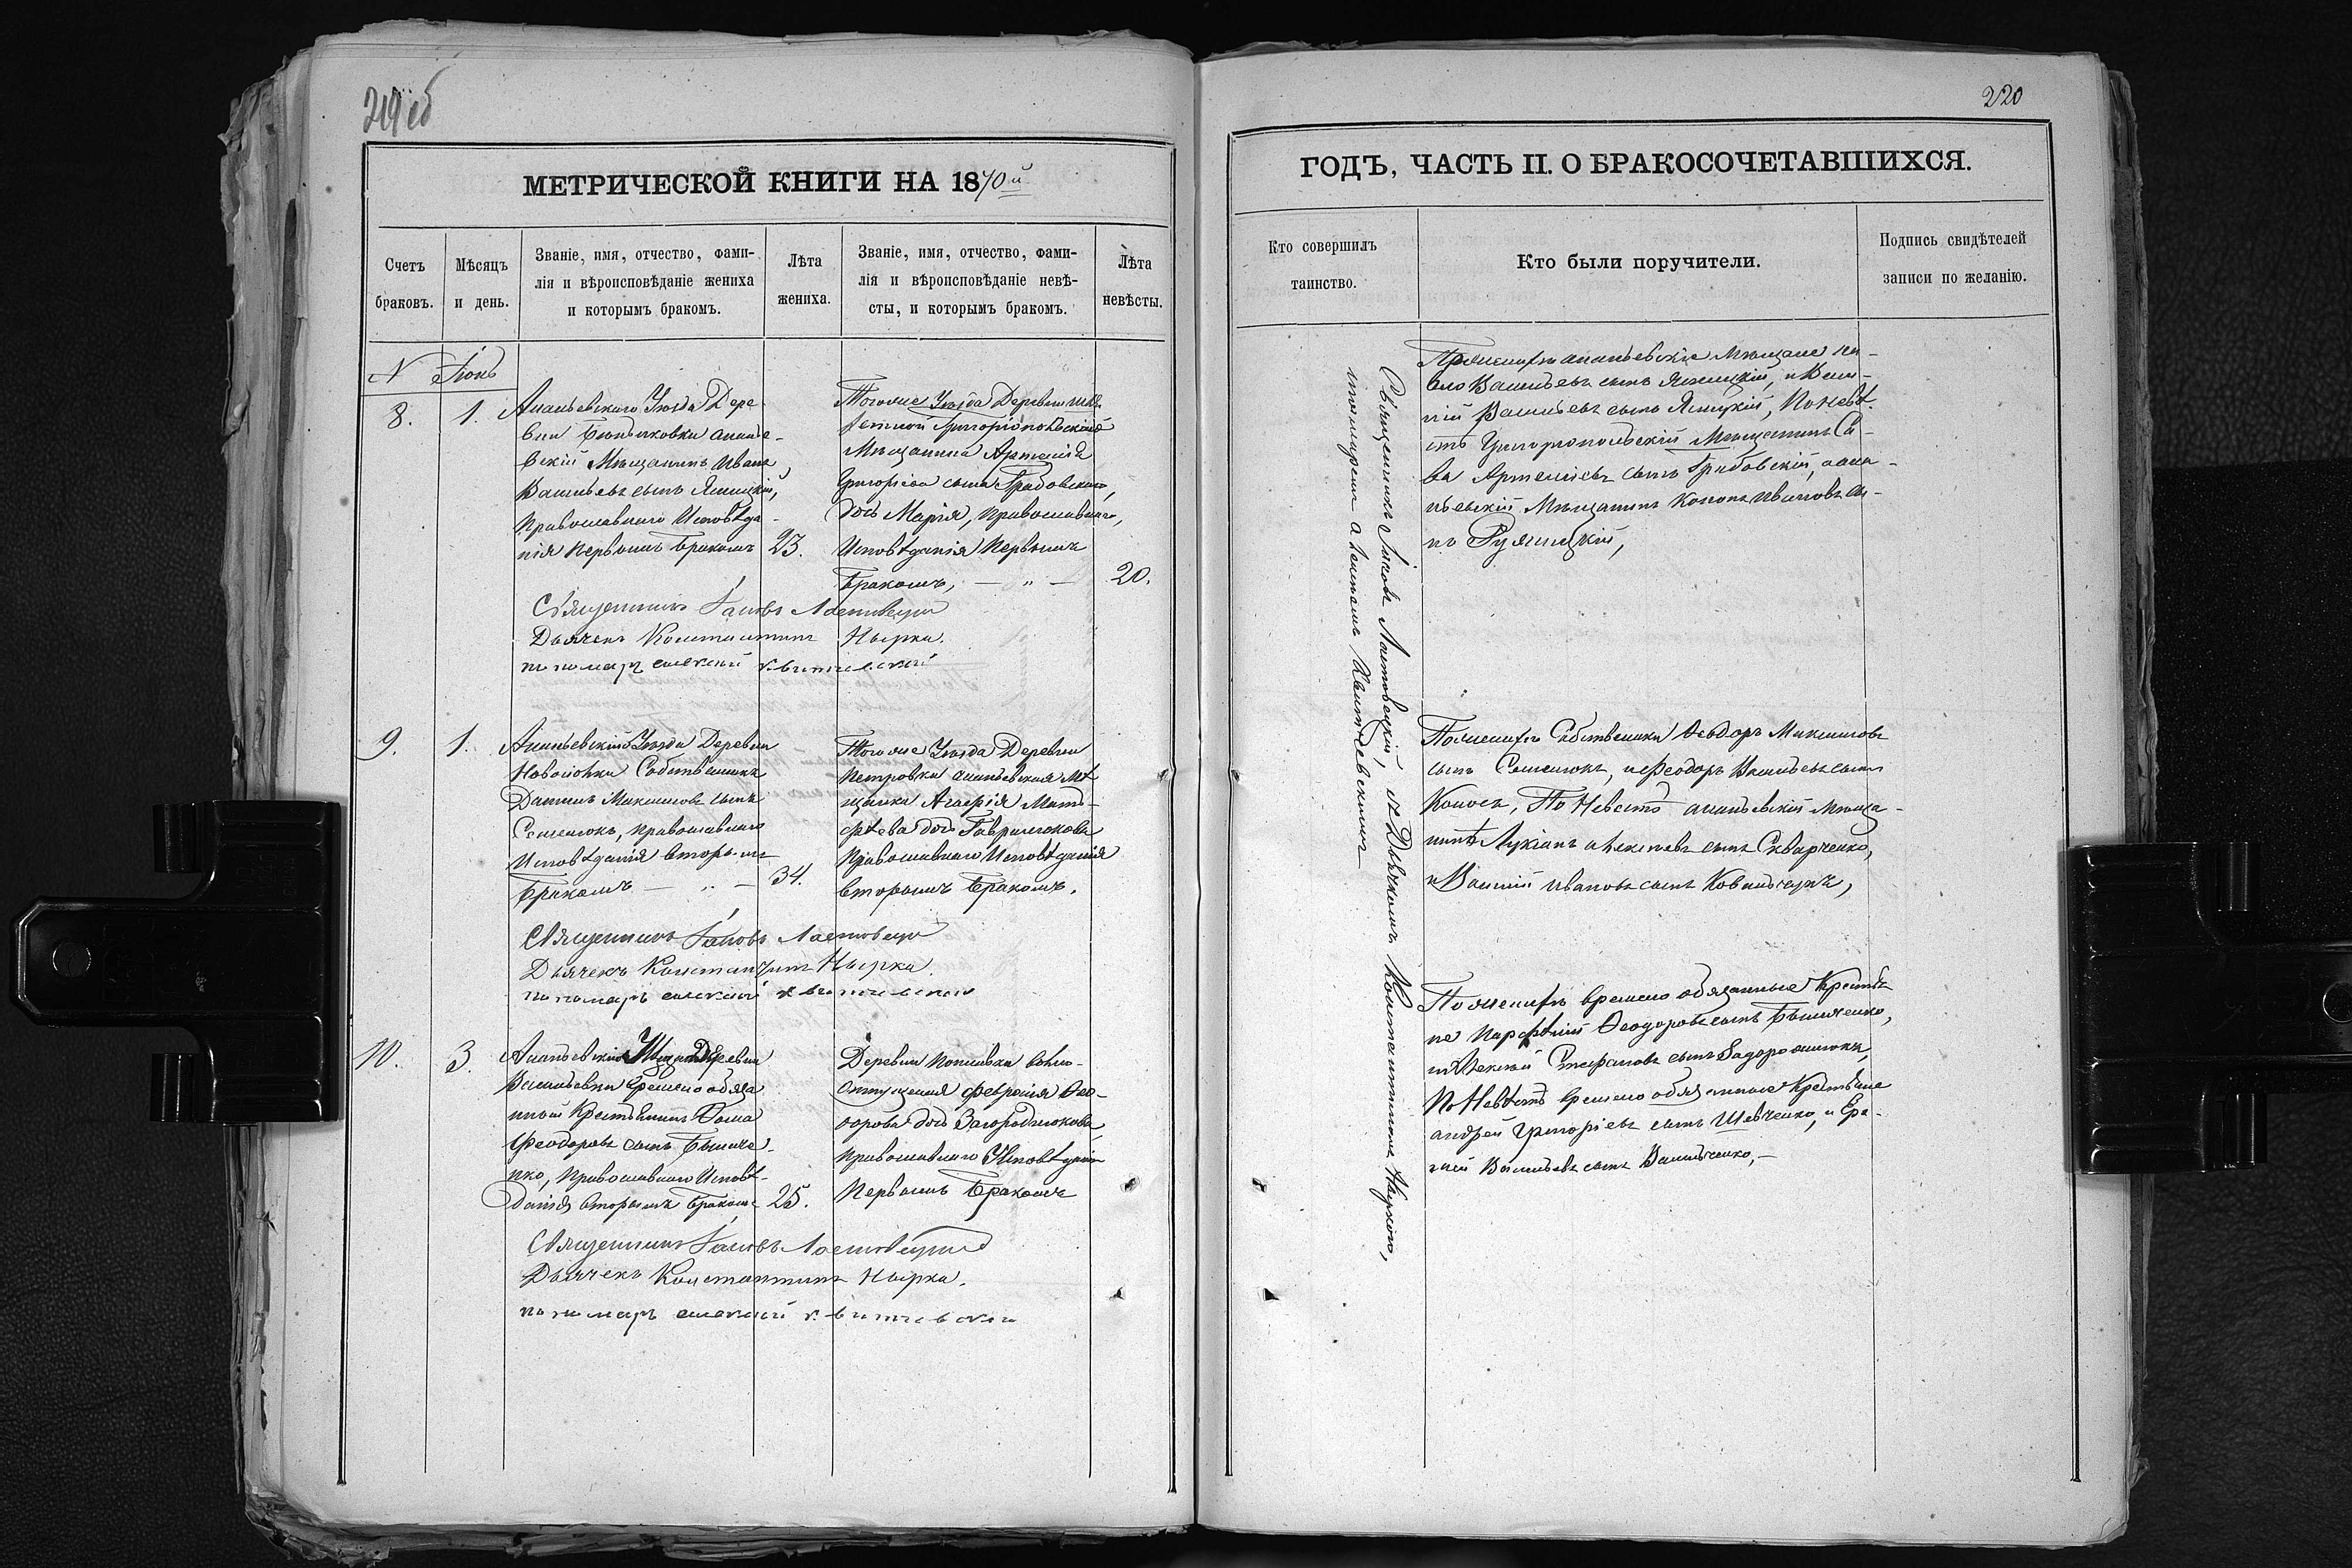 219 об
МЕТРИЧЕСКОЙ КНИГИ НА 1870й
Счетъ браковъ.
Мѣсяцъ и день.
Званіе, имя, отчество, фами-
лія и вѣроисповѣданіе жениха
и которымъ бракомъ.
Лѣта жениха.
Званіе, имя, отчество, фами-
лія и вѣроисповѣданіе невѣ-
сты, и которымъ бракомъ.
Лѣта невѣсты.
N Іюнь
8. 1.
Ананьевскаго Уѣзда Дере
вни ананье-
вскій Мѣщанинъ Иванъ
Васильевъ сынъ Ямницкій,
Православнаго Исповѣда-
нія Первымъ бракомъ
23.
Тогоже Уѣзда Деревни
Григоріопольскаго
Мѣщанина Артемія
Григоріева сына Грабовскаго,
дочь Марія, православнаго,
Исповѣданія Первымъ
бракомъ, — „ —
20.
Священникъ Іаковъ Ластовецкій
Дьячекъ Константинъ Нырка.
пономарь Алексій Квитневскій
9. 1.
Ананьевскаго Уѣзда Деревни
Новоселовки Собственникъ
Даніилъ Максимовъ сынъ
Семенюкъ, православнаго
Исповѣданія вторымъ
бракомъ — „ —
34.
Тогоже Уѣзда Деревни
Петровки ананьевская Мѣ
щанка Агафія Матѳ-
ѣева дочь Гаврилюкова
православнаго Исповѣданія
вторымъ бракомъ.
Священникъ Іаковъ Ластовецкій
Дьячекъ Константинъ Нырка.
пономарь Алексій Квитневскій
10. 3.
Ананьевскаго Уѣзда Деревни
Васильевки временно обяза
нный Крестьянинъ Ѳома
Феодоровъ сынъ
православнаго Исповѣ-
данія вторымъ бракомъ
25.
Деревни вольно-
отпущенная Февронія Ѳео-
дорова дочь Загороднюкова
православнаго Исповѣданія
Первымъ бракомъ
Священникъ Іаковъ Ластовецкій
Дьячекъ Константинъ Нырка.
пономарь Алексій Квитневскій
220
ГОДЪ, ЧАСТЬ II. О БРАКОСОЧЕТАВШИХСЯ.
Кто совершилъ таинство.
Кто были поручители.
Подпись свидѣтелей записи по желанію.
Священникъ Іаковъ Ластовецкій, съ Дьячкомъ Константиномъ Ныркою,
и пономаремъ Алексіемъ Квитневскимъ
По женихѣ ананьевскіе Мѣщане
Васильевъ сынъ Ямницкій, и Васи-
лій Васильевъ сынъ Ямницкій, По невѣ-
стѣ Григоріопольскій Мѣщанинъ Са-
ва Артеміевъ сынъ Грабовскій, анан-
ьевскій Мѣщанинъ Кононъ Ивановъ сы-
нъ
По женихѣ Собственники Ѳеодоръ Максимовъ
сынъ Семенюкъ, и Феодоръ Васильевъ сынъ
По Невѣстѣ ананьевскій Мѣща-
нинъ Лукіанъ Алексѣевъ сынъ Скварченко,
и Василій Ивановъ сынъ Ковальчукъ,
По женихѣ временно обязанные Крестья
не Парфеній Ѳеодоровъ сынъ
и Алексій Стефановъ сынъ
По Невѣстѣ временно обязанные Крестьяне
андрей Григоріевъ сынъ Шевченко, и
Васильевъ сынъ Васильченко, —